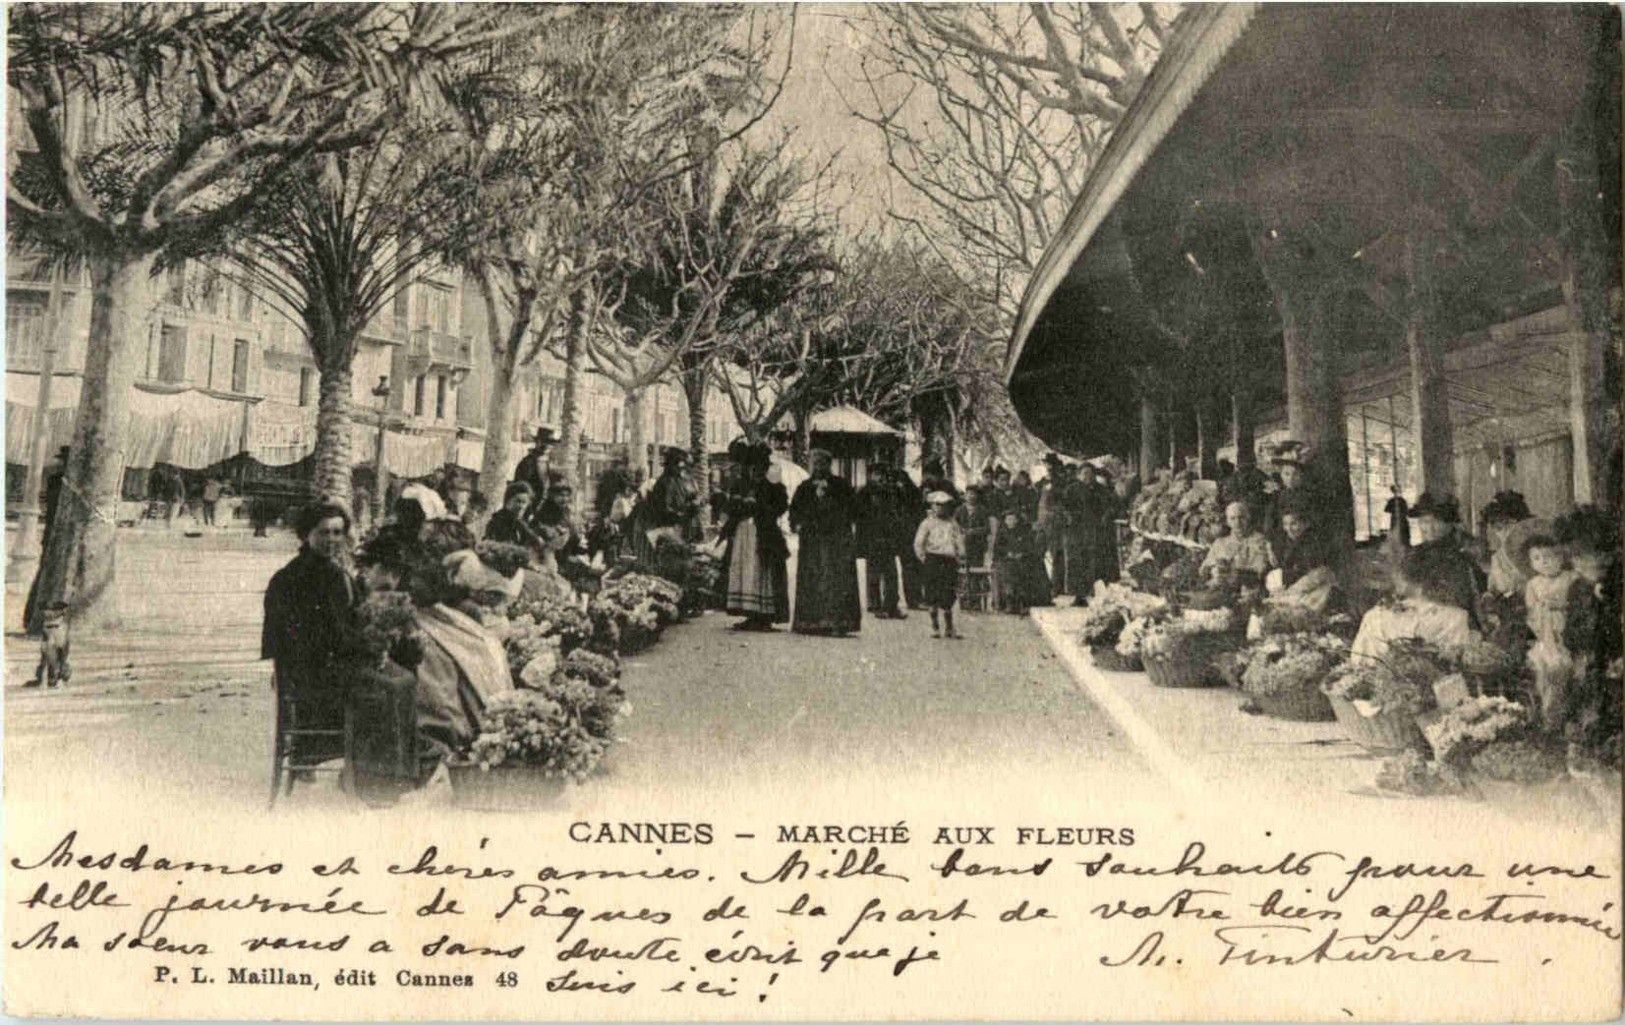 CANNES – MARCHÉ AUX FLEURS
Mesdames et chères amies. Mille bons souhaits pour une
belle journée de Pâques de la part de votre bien affectionnée
Ma soeur vous a sans doute écrit que je
suis ici !
P. L. Maillan, édit Cannes 48